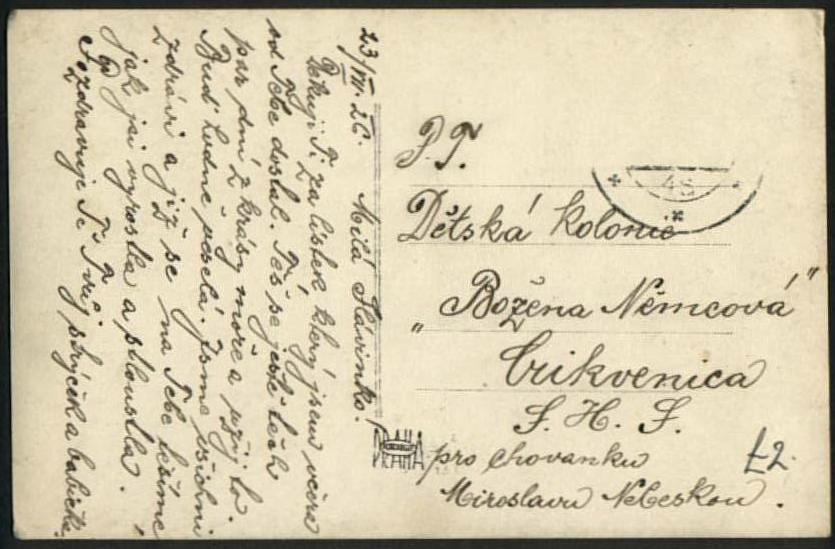 23/VII. 26. Milá Slávinko.
Děkuji Ti za lístek který jsem včera
od Tebe dostal. Těš se ještě těch
pár dní z krásy moře a užij to.
Buď hodně veselá. Jsme všichni
zdrávi a již se na Tebe těšíme
jak jsi vyrostla a stloustla.
Pozdravuje Tě Tvůj strýček a babička.
P. T.
Dětská kolonie
„Božena Němcová"
Crikvenica
S. H. S.
pro chovanku
Miroslavu Nebeskou.
PRAHA
48
£2.